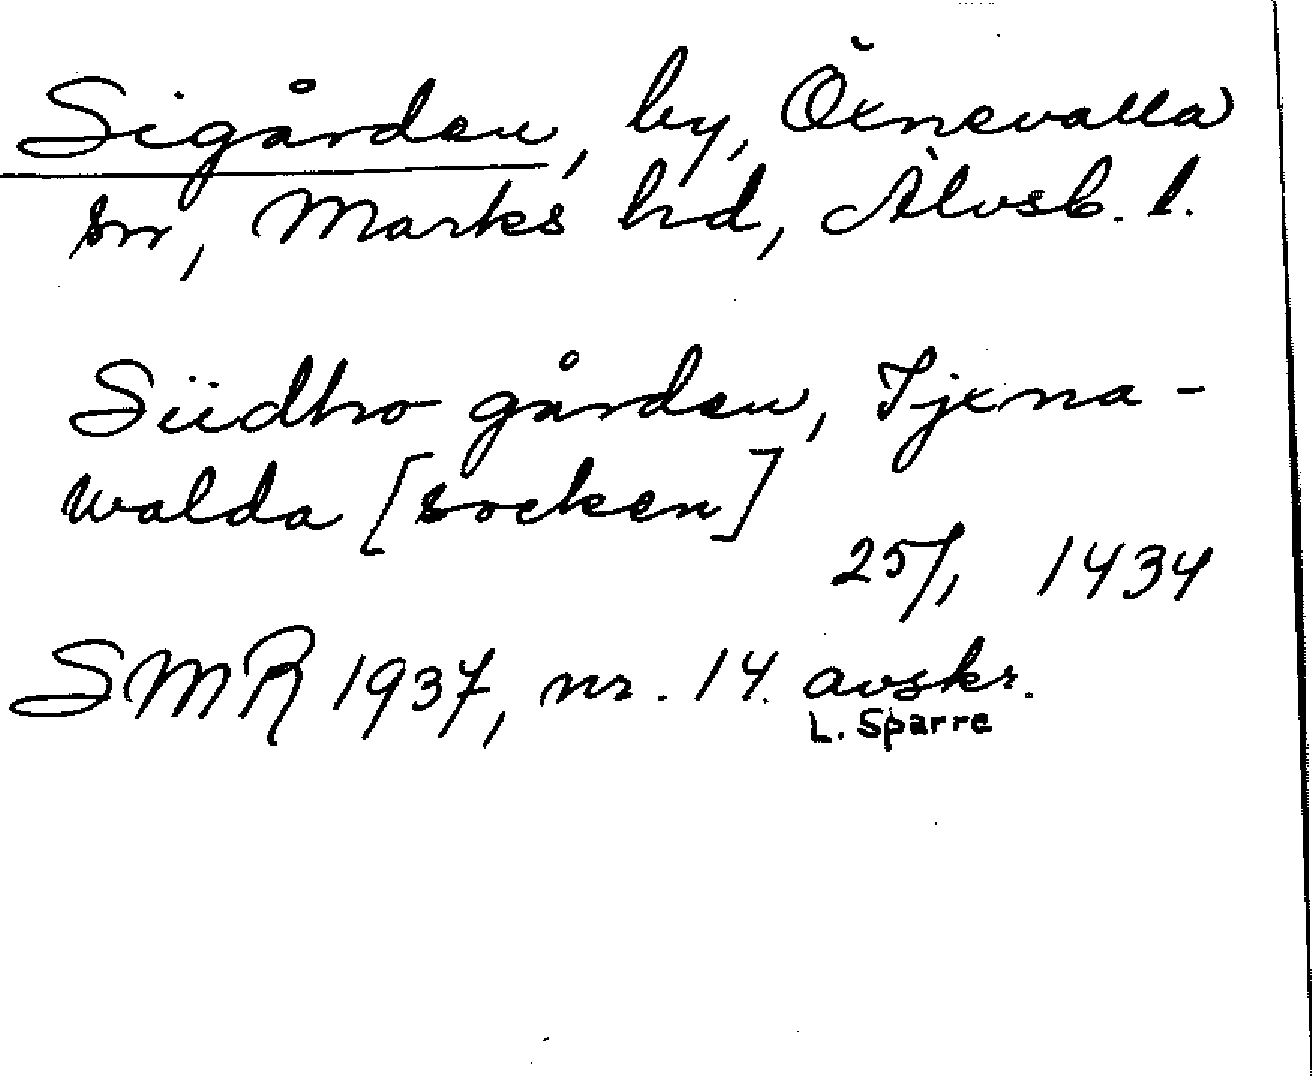 Sigården, by, Öxnevalla
sn, Marks hd, Älvsb. l.
Siidhro gården, Tjxna-
walda [socken]
25/1 1434
SMR 1937, nr. 14. avskr.
L. Sparre